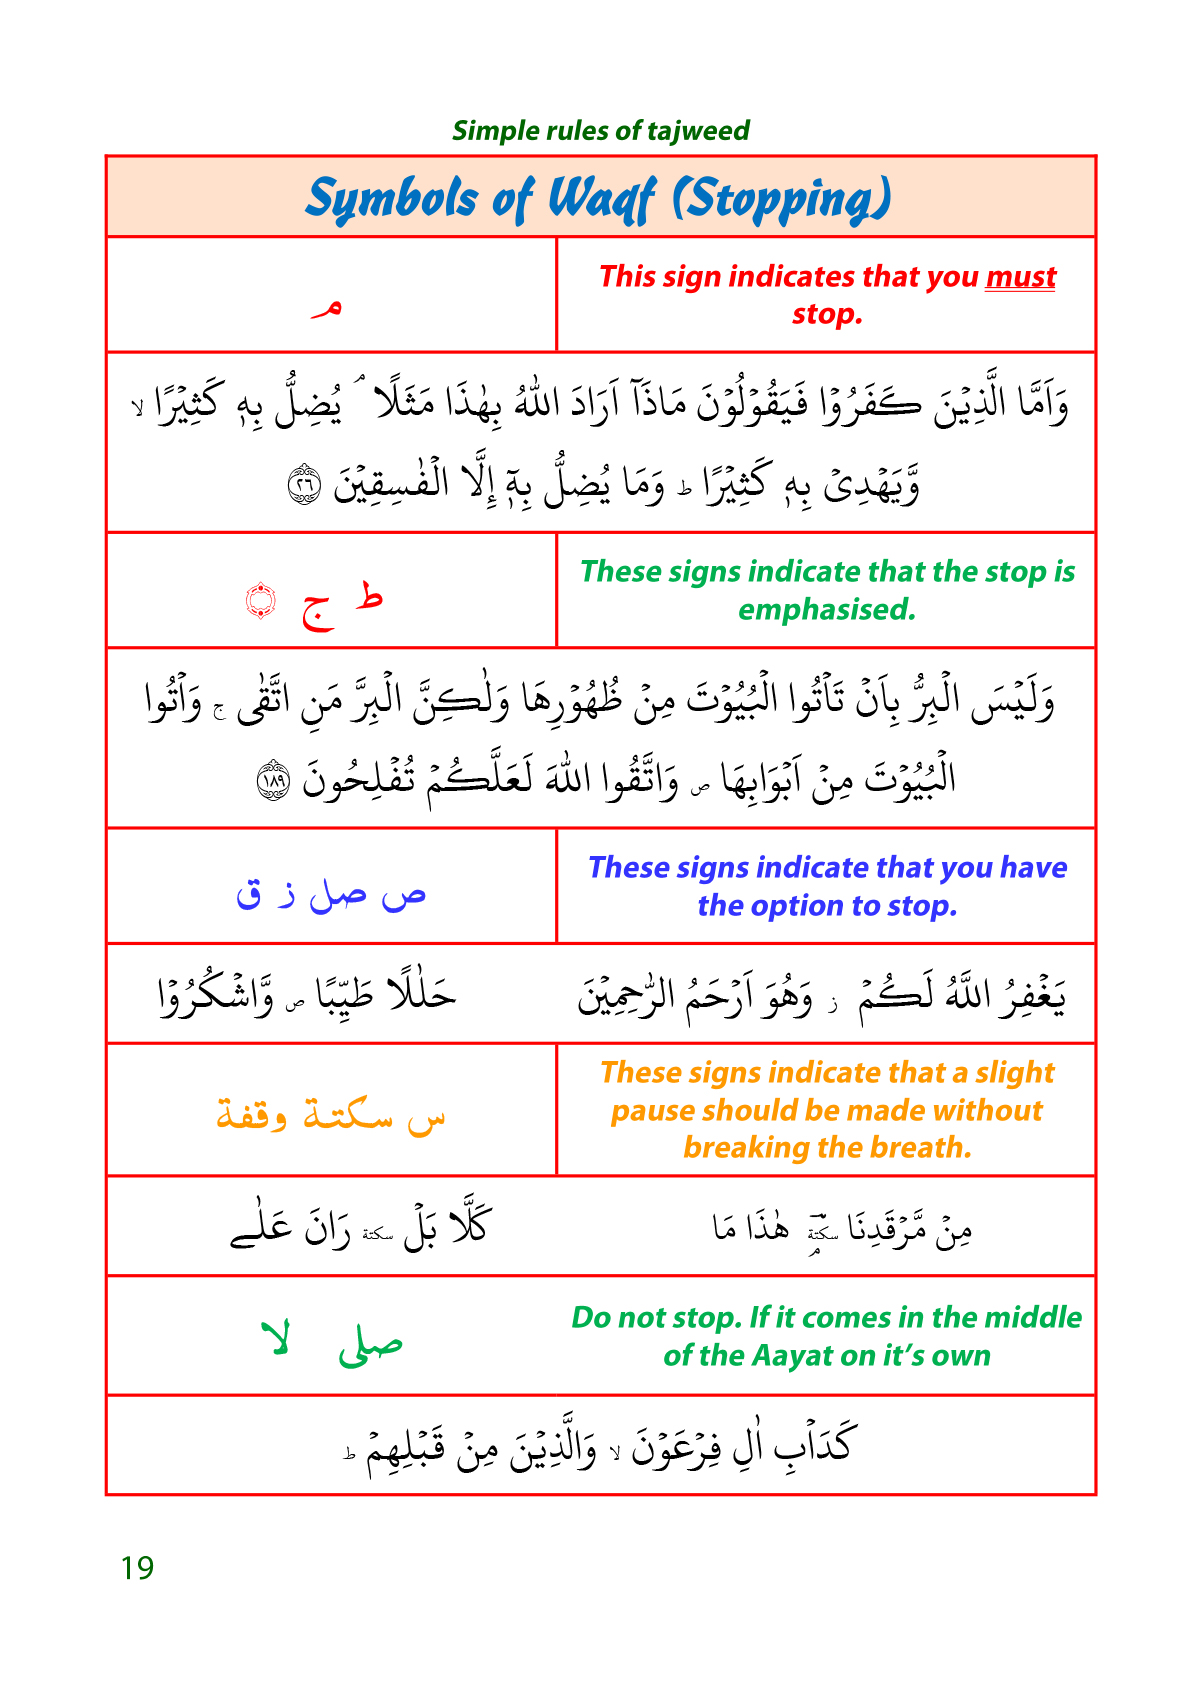 Simple rules of tajweed
Symbols of Waqf (Stopping)
مـ
This sign indicates that you must
stop.
وَاَمَّا الَّذِيْنَ كَفَرُوْا فَيَقُوْلُوْنَ مَاذَآ اَرَادَ اللهُ بِهٰذَا مَثَلًا ۘ يُضِلُّ بِهٖ كَثِيْرًا لا
وَّيَهْدِىْ بِهٖ كَثِيْرًا ط وَمَا يُضِلُّ بِهٖٓ اِلَّا الْفٰسِقِيْنَ ٢٦
ط ج ۝
These signs indicate that the stop is
emphasised.
وَلَيْسَ الْبِرُّ بِاَنْ تَاْتُوا الْبُيُوْتَ مِنْ ظُهُوْرِهَا وَلٰكِنَّ الْبِرَّ مَنِ اتَّقٰى ج وَاْتُوا
الْبُيُوْتَ مِنْ اَبْوَابِهَا ص وَاتَّقُوا اللهَ لَعَلَّكُمْ تُفْلِحُونَ ١٨٩
ص صل ز ق
These signs indicate that you have
the option to stop.
يَغْفِرُ اللَّهُ لَكُمْ ز وَهُوَ اَرْحَمُ الرّٰحِمِيْنَ
حَلٰلًا طَيِّبًا ص وَّاشْكُرُوْا
س سكتة وقفة
These signs indicate that a slight
pause should be made without
breaking the breath.
مِنْ مَّرْقَدِنَا سكتة هٰذَا مَا
كَلَّا بَلْ سكتة رَانَ عَلٰے
صلى لا
Do not stop. If it comes in the middle
of the Aayat on it’s own
كَدَاْبِ اٰلِ فِرْعَوْنَ لا وَالَّذِيْنَ مِنْ قَبْلِهِمْ ط
19